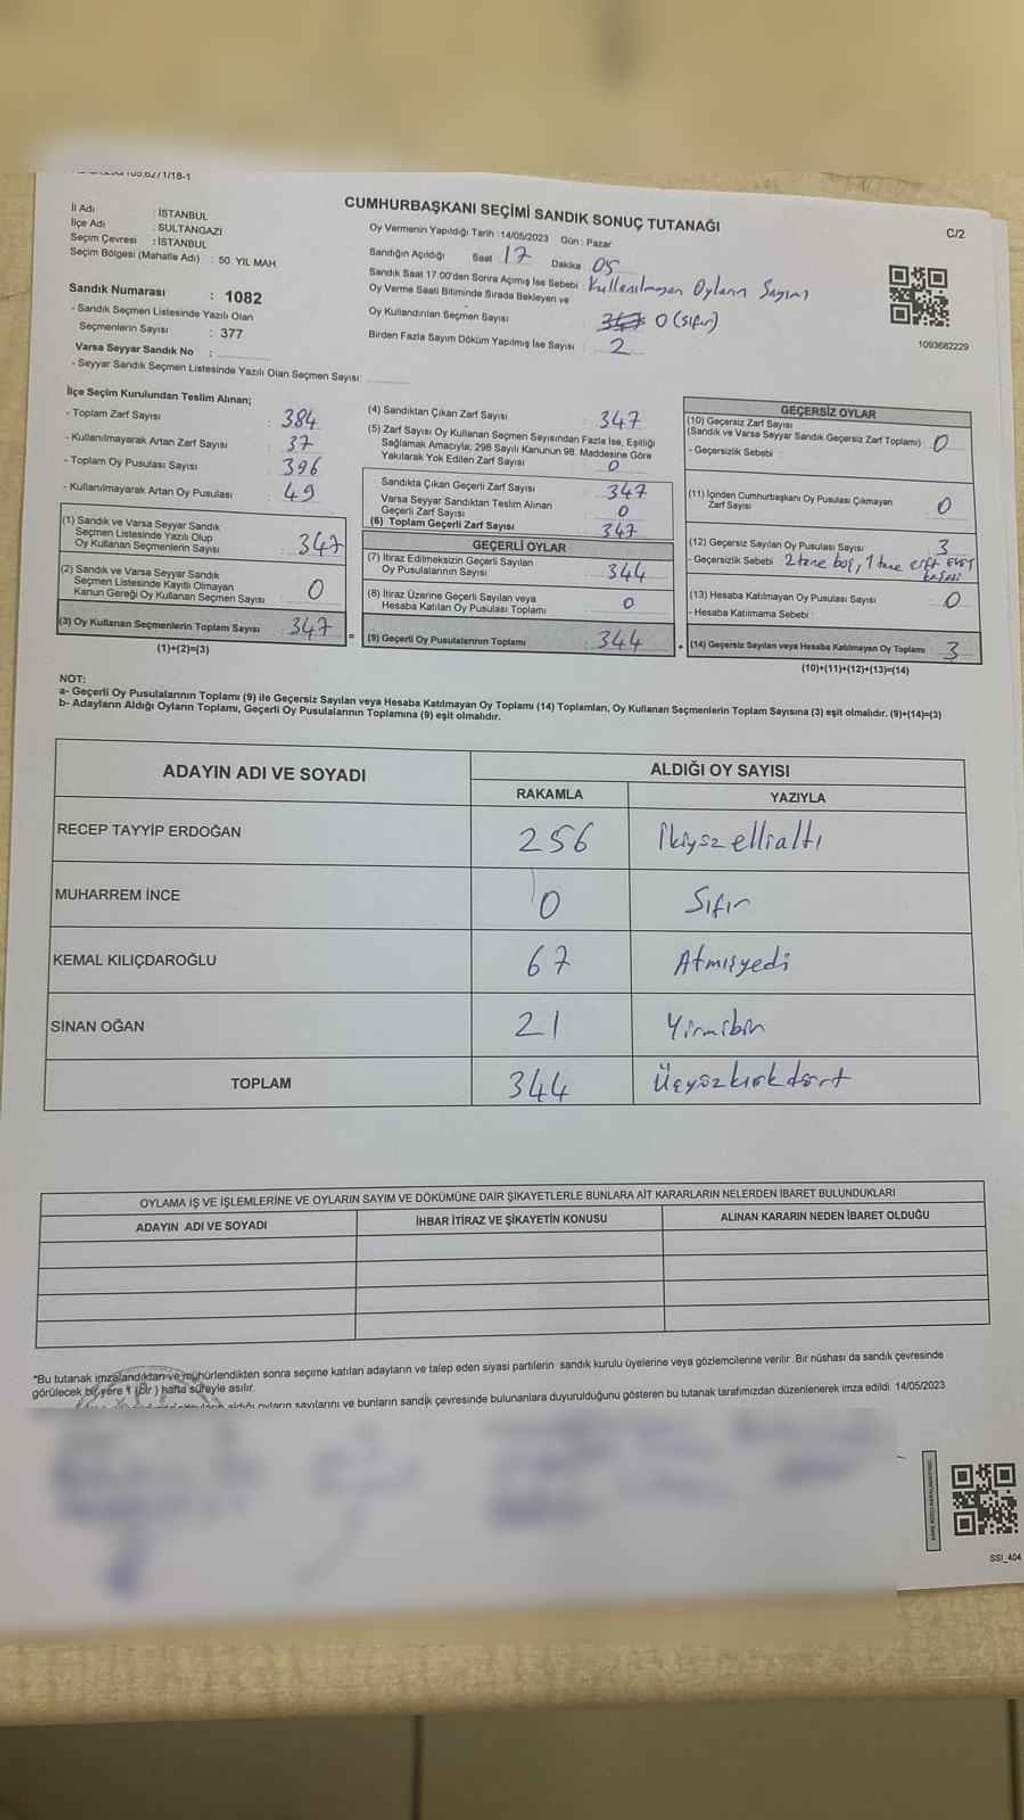 CUMHURBAŞKANI SEÇİMİ SANDIK SONUÇ TUTANAĞI
C/2
İl Adı : İSTANBUL
İlçe Adı : SULTANGAZİ
Seçim Çevresi : İSTANBUL
Seçim Bölgesi (Mahalle Adı) : 50. YIL MAH.
Sandık Numarası : 1082
- Sandık Seçmen Listesinde Yazılı Olan
Seçmenlerin Sayısı : 377
Varsa Seyyar Sandık No :
- Seyyar Sandık Seçmen Listesinde Yazılı Olan Seçmen Sayısı:
Oy Vermenin Yapıldığı Tarih : 14/05/2023 Gün : Pazar
Sandığın Açıldığı Saat 17 Dakika 05
Sandık Saat 17.00'den Sonra Açılmış İse Sebebi : Kullanılmayan Oyların Sayımı
Oy Verme Saati Bitiminde Sırada Bekleyen ve
Oy Kullandırılan Seçmen Sayısı 0 (sıfır)
Birden Fazla Sayım Döküm Yapılmış İse Sayısı 2
1093682229
İlçe Seçim Kurulundan Teslim Alınan;
- Toplam Zarf Sayısı : 384
- Kullanılmayarak Artan Zarf Sayısı : 37
- Toplam Oy Pusulası Sayısı : 396
- Kullanılmayarak Artan Oy Pusulası : 49
(1) Sandık ve Varsa Seyyar Sandık
Seçmen Listesinde Yazılı Olup
Oy Kullanan Seçmenlerin Sayısı : 347
(2) Sandık ve Varsa Seyyar Sandık
Seçmen Listesinde Kayıtlı Olmayan
Kanun Gereği Oy Kullanan Seçmen Sayısı 0
(3) Oy Kullanan Seçmenlerin Toplam Sayısı 347
(1)+(2)=(3)
(4) Sandıktan Çıkan Zarf Sayısı 347
(5) Zarf Sayısı Oy Kullanan Seçmen Sayısından Fazla İse, Eşitliği
Sağlamak Amacıyla, 298 Sayılı Kanunun 98. Maddesine Göre
Yakılarak Yok Edilen Zarf Sayısı 0
Sandıkta Çıkan Geçerli Zarf Sayısı 347
Varsa Seyyar Sandıktan Teslim Alınan
Geçerli Zarf Sayısı 0
(6) Toplam Geçerli Zarf Sayısı 347
GEÇERLİ OYLAR
(7) İtiraz Edilmeksizin Geçerli Sayılan
Oy Pusulalarının Sayısı 344
(8) İtiraz Üzerine Geçerli Sayılan veya
Hesaba Katılan Oy Pusulası Toplamı 0
= (9) Geçerli Oy Pusulalarının Toplamı 344
GEÇERSİZ OYLAR
(10) Geçersiz Zarf Sayısı
(Sandık ve Varsa Seyyar Sandık Geçersiz Zarf Toplamı) 0
- Geçersizlik Sebebi
(11) İçinden Cumhurbaşkanı Oy Pusulası Çıkmayan
Zarf Sayısı 0
(12) Geçersiz Sayılan Oy Pusulası Sayısı 3
- Geçersizlik Sebebi 2 tane boş, 1 tane çift EVET
(13) Hesaba Katılmayan Oy Pusulası Sayısı 0
- Hesaba Katılmama Sebebi
+ (14) Geçersiz Sayılan veya Hesaba Katılmayan Oy Toplamı 3
(10)+(11)+(12)+(13)=(14)
NOT:
a- Geçerli Oy Pusulalarının Toplamı (9) ile Geçersiz Sayılan veya Hesaba Katılmayan Oy Toplamı (14) Toplamları, Oy Kullanan Seçmenlerin Toplam Sayısına (3) eşit olmalıdır. (9)+(14)=(3)
b- Adayların Aldığı Oyların Toplamı, Geçerli Oy Pusulalarının Toplamına (9) eşit olmalıdır.
ADAYIN ADI VE SOYADI ALDIĞI OY SAYISI
RAKAMLA YAZIYLA
RECEP TAYYİP ERDOĞAN 256 İkiyüz ellialtı
MUHARREM İNCE 0 Sıfır
KEMAL KILIÇDAROĞLU 67 Atmışyedi
SİNAN OĞAN 21 Yirmibir
TOPLAM 344 Üçyüzkırkdört
OYLAMA İŞ VE İŞLEMLERİNE VE OYLARIN SAYIM VE DÖKÜMÜNE DAİR ŞİKAYETLERLE BUNLARA AİT KARARLARIN NELERDEN İBARET BULUNDUKLARI
ADAYIN ADI VE SOYADI İHBAR İTİRAZ VE ŞİKAYETİN KONUSU ALINAN KARARIN NEDEN İBARET OLDUĞU
*Bu tutanak imzalandıktan ve mühürlendikten sonra seçime katılan adayların ve talep eden siyasi partilerin sandık kurulu üyelerine veya gözlemcilerine verilir. Bir nüshası da sandık çevresinde
görülecek bir yere 1 (bir) hafta süreyle asılır.
aldığı oyların sayılarını ve bunların sandık çevresinde bulunanlara duyurulduğunu gösteren bu tutanak tarafımızdan düzenlenerek imza edildi. 14/05/2023
SSI_404